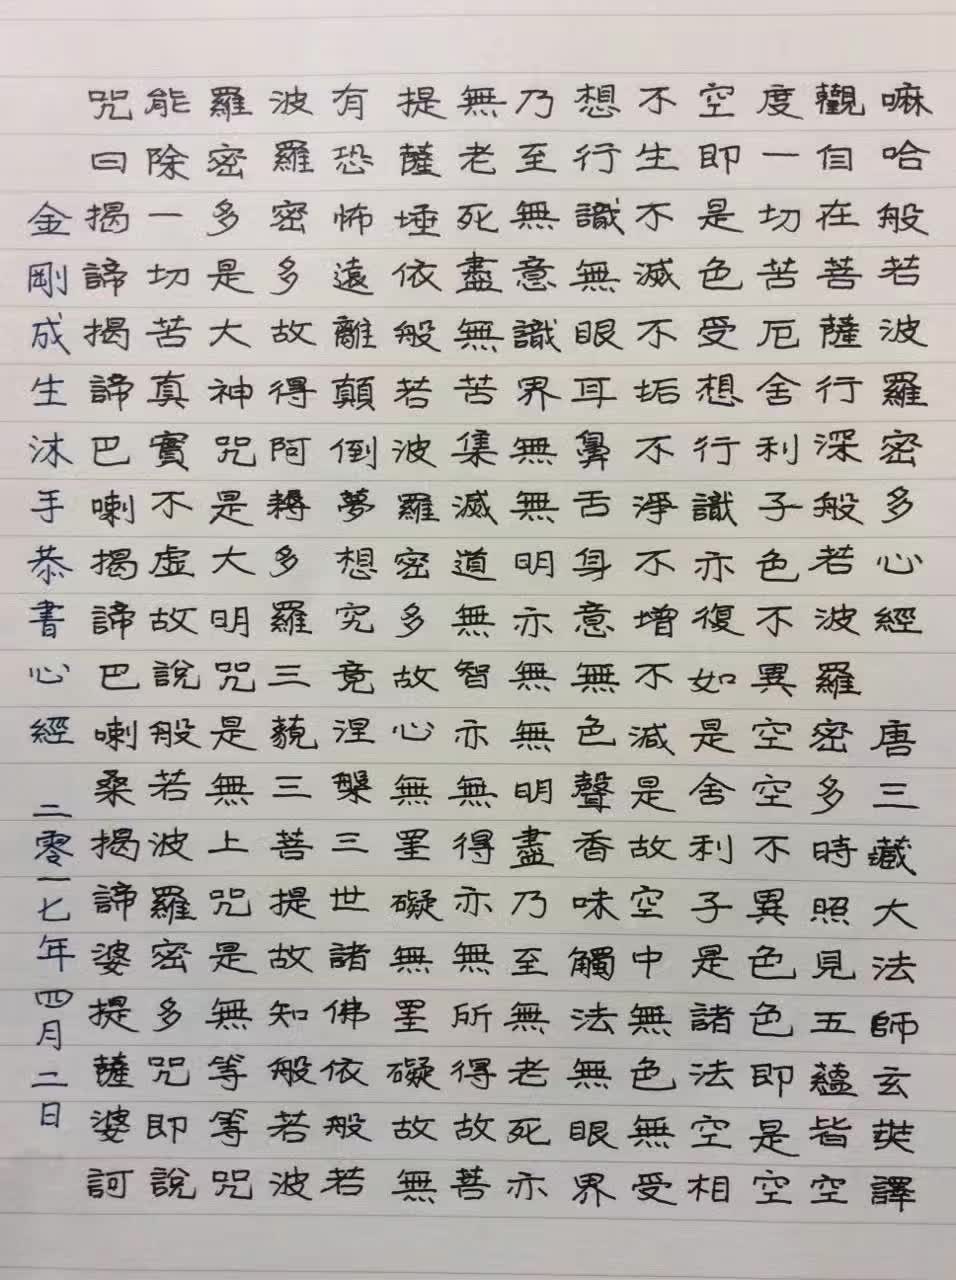 嘛哈般若波羅密多心經 唐三藏大法師玄奘譯
觀自在菩薩行深般若波羅密多時照見五蘊皆空
度一切苦厄舍利子色不異空空不異色色即是空
空即是色受想行識亦復如是舍利子是諸法空相
不生不滅不垢不淨不增不減是故空中無色無受
想行識無眼耳鼻舌身意無色聲香味觸法無眼界
乃至無意識界無無明亦無無明盡乃至無老死亦
無老死盡無苦集滅道無智亦無得亦無所得故菩
提薩埵依般若波羅密多故心無罣礙無罣礙故無
有恐怖遠離顛倒夢想究竟涅槃三世諸佛依般若
波羅密多故得阿耨多羅三藐三菩提故知般若波
羅密多是大神咒是大明咒是無上咒是無等等咒
能除一切苦真實不虛故說般若波羅密多咒即說
咒曰揭諦揭諦巴喇揭諦巴喇桑揭諦婆提薩婆訶
金剛成生沐手恭書心經 二零一七年四月二日